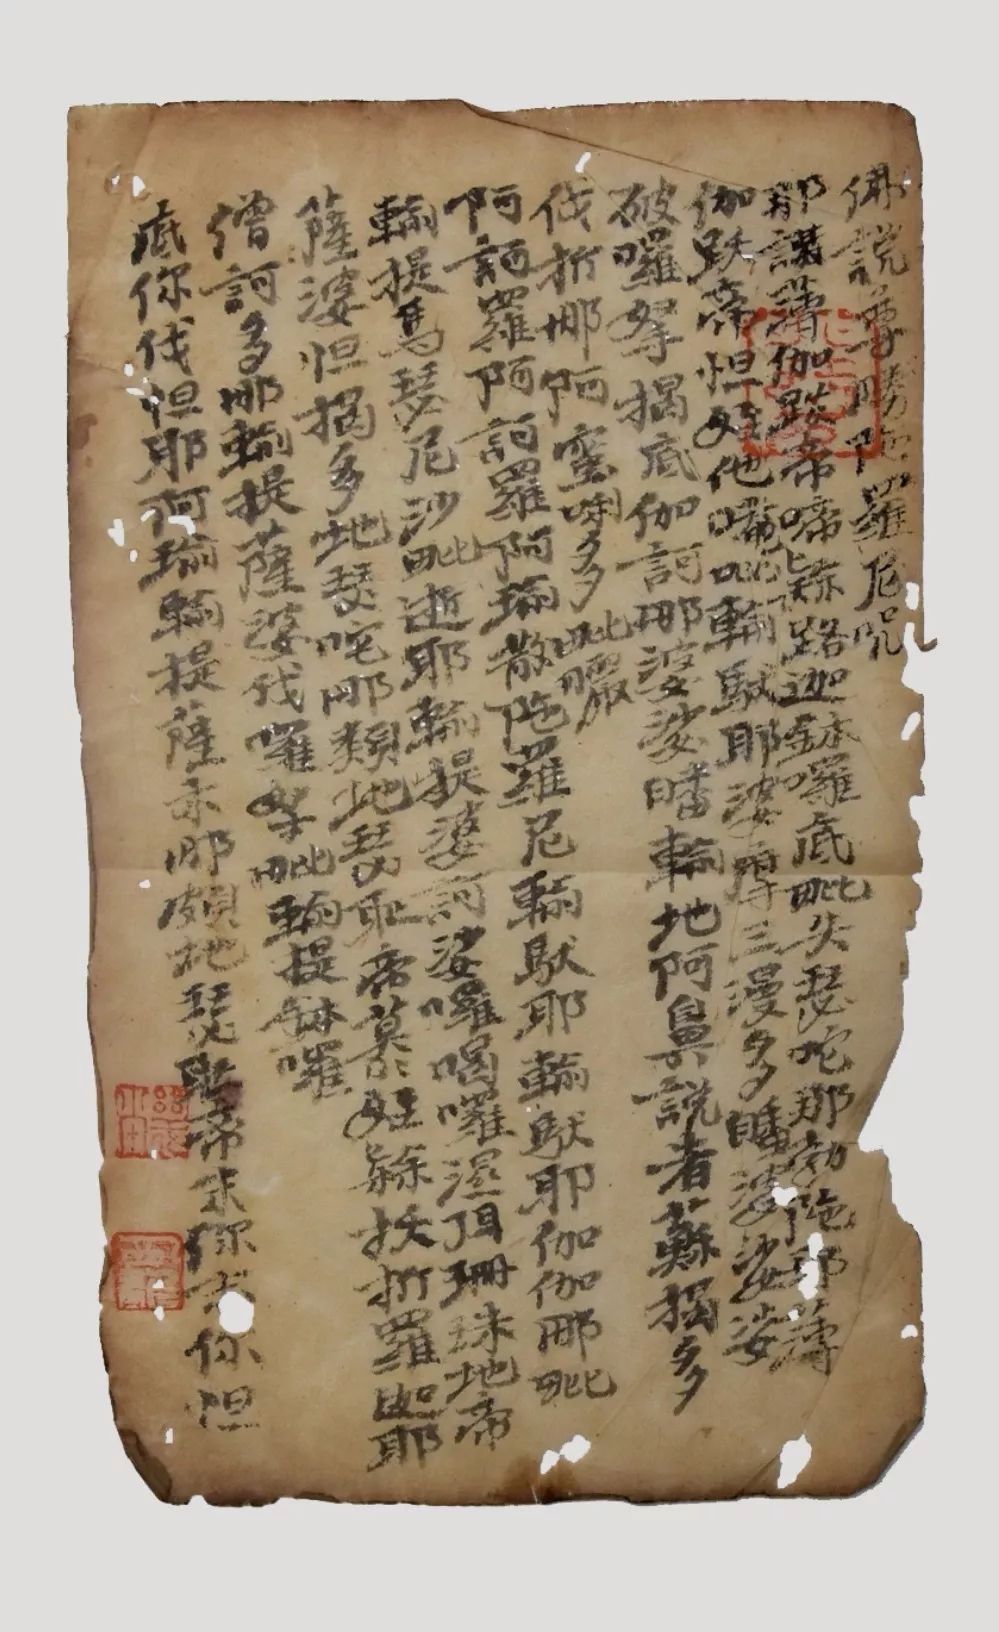 佛說尊勝陀羅尼咒
耶謨薄伽跌帝啼隸路迦鉢囉底毗失瑟咜那勃陁耶薄
伽跌帝怛姪他嗚吽輸馱耶婆摩三漫多皤婆娑娑
破囉拏揭底伽訶那婆娑皤輸地阿鼻說者蘇揭多
伐折那阿蜜唎多毗曬
阿訶羅阿訶羅阿瑜散陁羅尼輸馱耶輸馱耶伽伽那毗
輸提烏瑟尼沙毗逝耶輸提婆訶娑囉喝囉濕弭珊珠地帝
薩婆怛揭多地瑟咤那頞地瑟耻帝慕姪隸拔折羅迦耶
僧訶多那輸提薩婆伐囉拏毗輸提鉢囉
底你伐怛耶阿瑜輸提薩末那頞地瑟耻帝末你末你怛